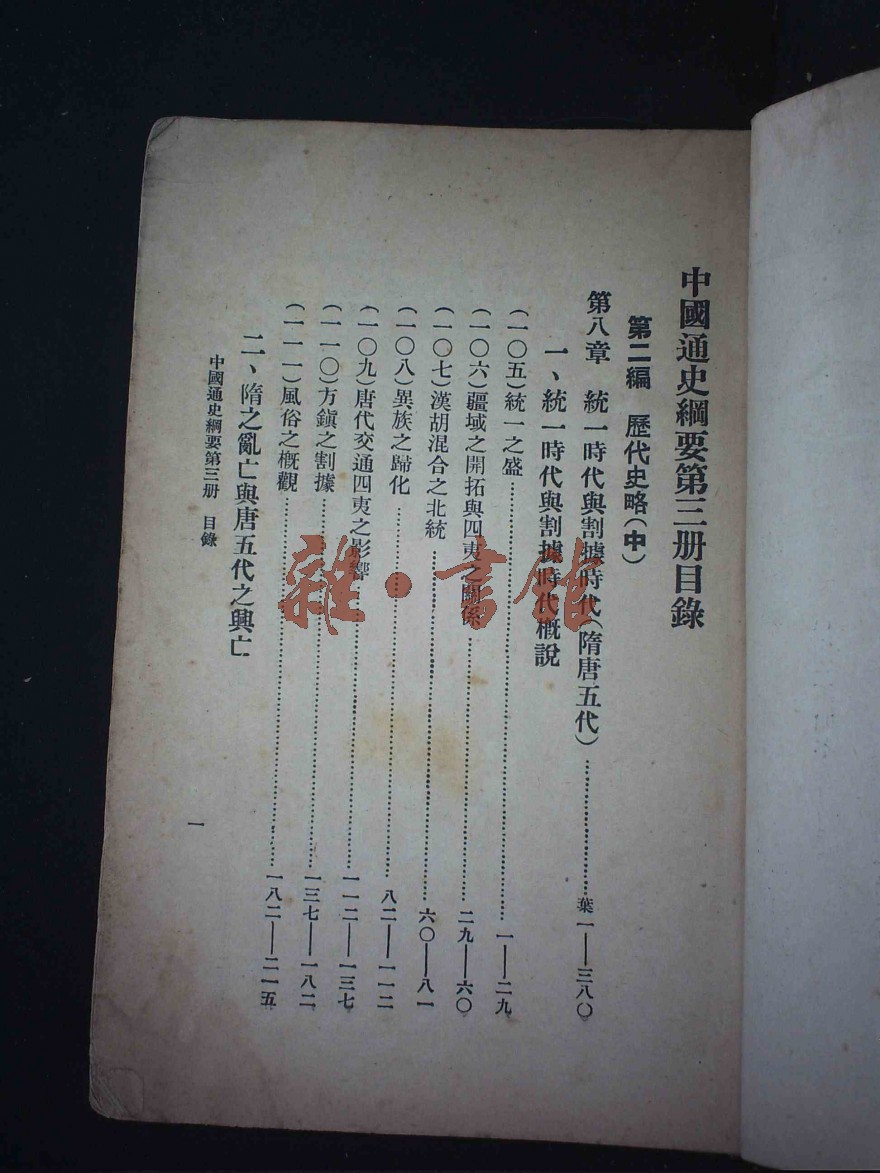 中國通史綱要第三册目錄
第二編　歷代史略（中）
第八章　統一時代與割據時代（隋唐五代）……葉一——三八〇
一、統一時代與割據時代概說
（一〇五）統一之盛……一——二九
（一〇六）疆域之開拓與四夷之關係……二九——六〇
（一〇七）漢胡混合之北統……六〇——八一
（一〇八）異族之歸化……八二——一一二
（一〇九）唐代交通四夷之影響……一一二——一三七
（一一〇）方鎭之割據……一三七——一八二
（一一一）風俗之槪觀……一八二——二一五
二、隋之亂亡與唐五代之興亡
中國通史綱要第三册　目錄
一
雜·書館